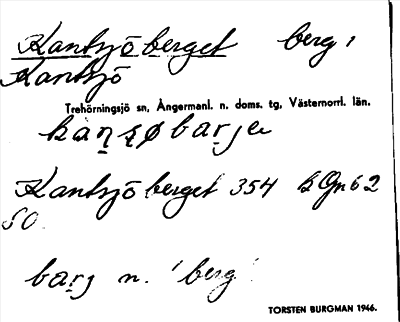 Kantsjöberget berg i
Kantsjö
Trehörningsjö sn, Ångermanl. n. doms. tg, Västernorrl. län.
Kantsjöberget 354
SO.
barj n. 'berg'.
TORSTEN BURGMAN 1946.